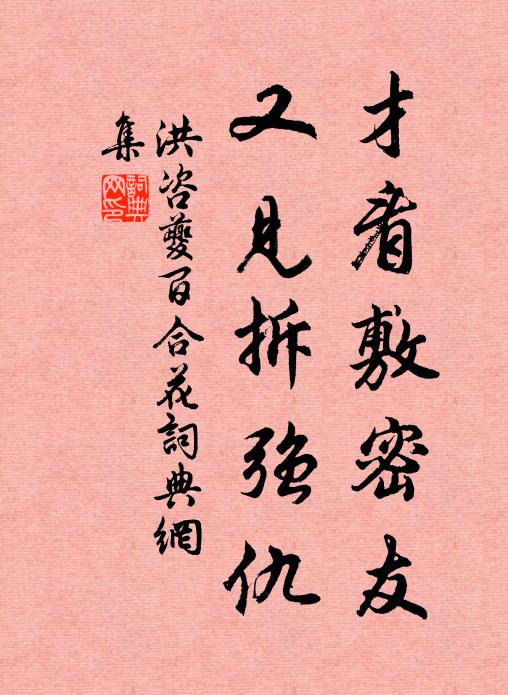 才看敷密友
又見拆強仇
洪咨夔百合花詞典網
集
詞典
网印